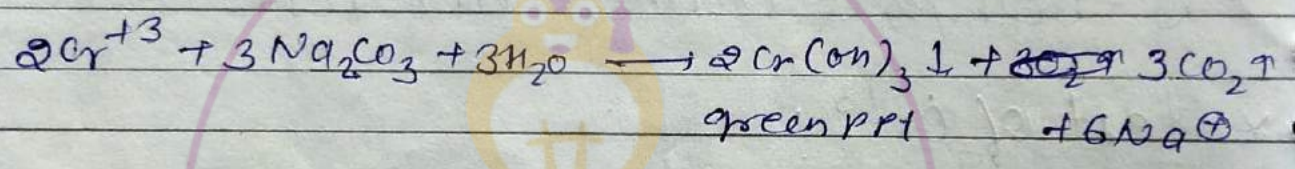 2Cr⁺³ + 3Na₂CO₃ + 3H₂O ⟶ 2Cr(OH)₃↓ + 3CO₂↑
green ppt + 6Na⊕